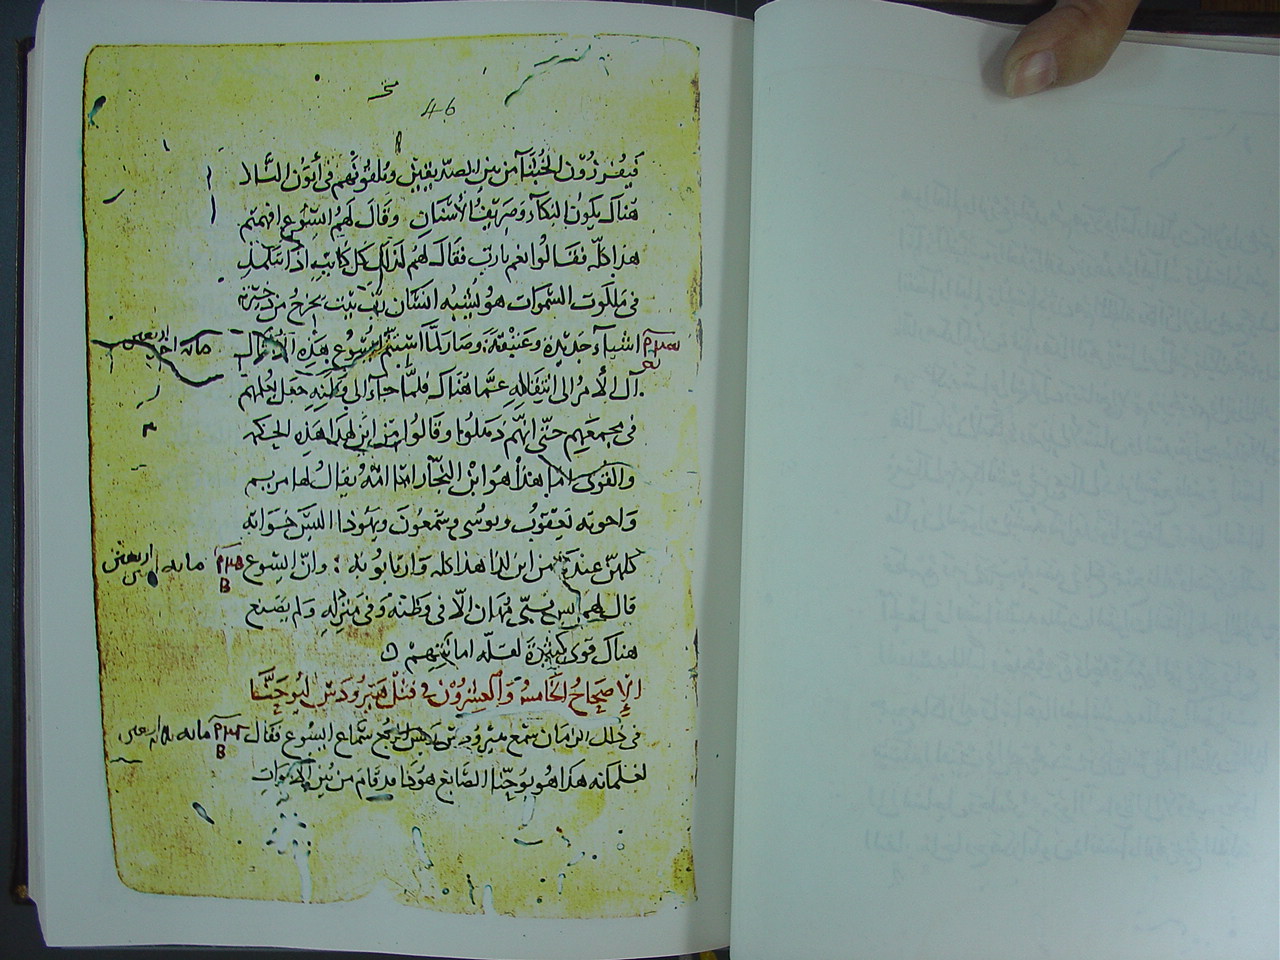 46
فيفرزون الخبثآ من بين الصديقين ويلقونهم في أتون النار
هناك يكون البكآء وصريف الأسنان وقال لهم اليسوع افهمتم
هذا كله فقالوا نعم يا رب فقال لهم لذلك كل كاتب اذا تتلمذ
في ملكوت السموات هو يشبه انسان رب بيت يخرج من خزنه
اشيآء جديدة وعتيقة وصار لمّا استتم اليسوع بهذه الأمثال
مائه احد اربعين
آل الأمر الى انتقاله عمّا هناك فلمّا جآء الى وطنه جعل يعلمهم
في مجمعهم حتّى انهم ذهلوا وقالوا من اين لهذا هذه الحكمه
والقوى اما هذا هو ابن النجّار اما امّه يقال لها مريم
واخوته يعقوب ويوسى وشمعون ويهوذا اليس خواته
كلهنّ عندنا من اين لذا هذا كله وارتابوا به وانّ اليسوع
مائه اربعين
قال لهم ليس نبيّ مهان الّا في وطنه وفي منزله ولم يصنع
هناك قوى كثيرة لقلّه امانتهم
الإصحاح الخامس والعشرون في قتل هيرودس ليوحنّا
في ذلك الزمان سمع هيرودس رئيس الربع سماع اليسوع فقال
لغلمانه هذا هو يوحنّا الصابغ هوذا قد قام من بين الاموات